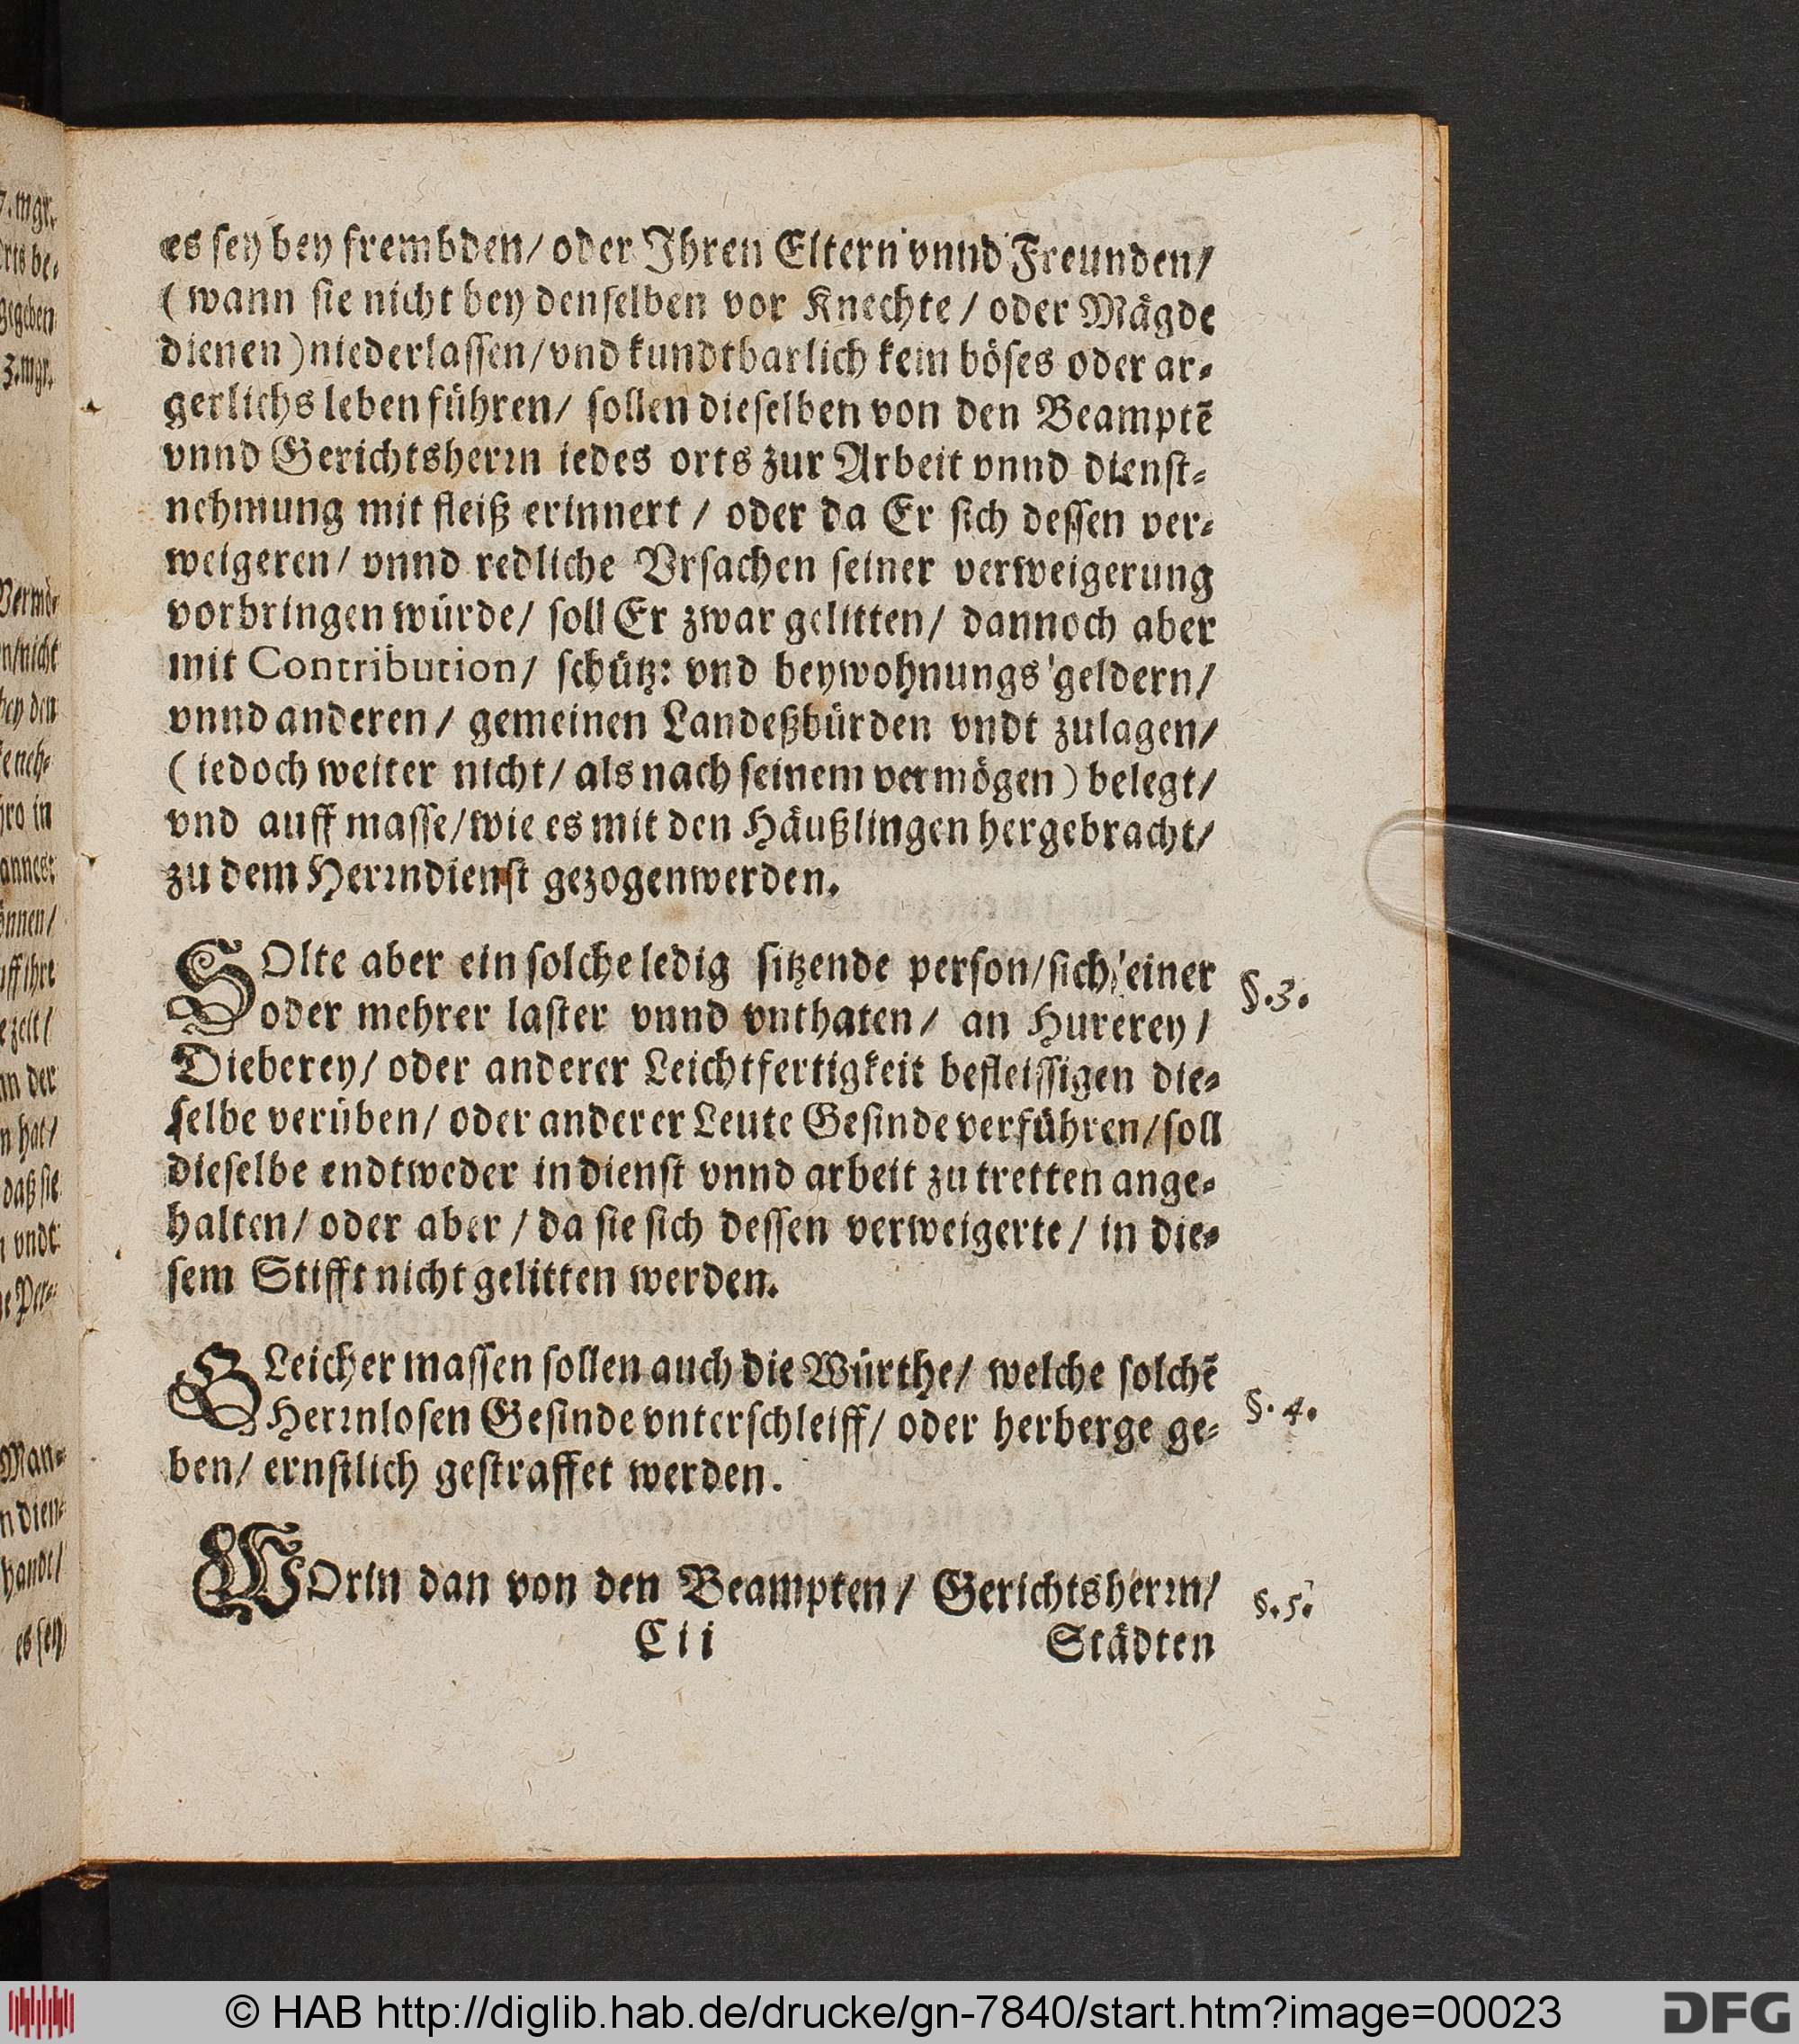 es ſey bey frembden/ oder Ihren Eltern vnnd Freunden/
(wann ſie nicht bey denſelben vor Knechte / oder Mägde
dienen) niederlaſſen/ vnd kundtbarlich kein böſes oder ar-
gerlichs leben führen/ ſollen dieſelben von den Beamptē
vnnd Gerichtsherꝛn iedes orts zur Arbeit vnnd dienſt-
nehmung mit fleiß erinnert / oder da Er ſich deſſen ver-
weigeren/ vnnd redliche Vrſachen ſeiner verweigerung
vorbringen würde/ ſoll Er zwar gelitten/ dannoch aber
mit Contribution/ ſchütz: vnd beywohnungs geldern/
vnnd anderen / gemeinen Landeßbürden vndt zulagen/
(iedoch weiter nicht/ als nach ſeinem vermögen) belegt/
vnd auff maſſe/ wie es mit den Häußlingen hergebracht/
zu dem Herꝛndienſt gezogen werden.
SOlte aber ein ſolche ledig ſitzende perſon/ ſich einer
§.3.
oder mehrer laſter vnnd vnthaten/ an Hurerey /
Dieberey/ oder anderer Leichtfertigkeit befleiſſigen die-
ſelbe verüben/ oder anderer Leute Geſinde verführen/ ſoll
dieſelbe endtweder in dienſt vnnd arbeit zu tretten ange-
halten/ oder aber / da ſie ſich deſſen verweigerte / in die-
ſem Stifft nicht gelitten werden.
GLeicher maſſen ſollen auch die Würthe/ welche ſolchē
§. 4.
Herꝛnloſen Geſinde vnterſchleiff/ oder herberge ge-
ben/ ernſtlich geſtraffet werden.
WOrin dan von den Beampten / Gerichtsherꝛn/
§. 5.
C ii
Städten
7. mgr.
rts be-
gegeben
3. mgr.
Vermö-
n/nicht
bey den
neh-
hro in
annes:
önnen/
uff ihre
ezelt/
nn der
n hat/
daß ſie
n vndt
e Per-
Man-
n dien-
hande/
es ſey
© HAB http://diglib.hab.de/drucke/gn-7840/start.htm?image=00023
DFG